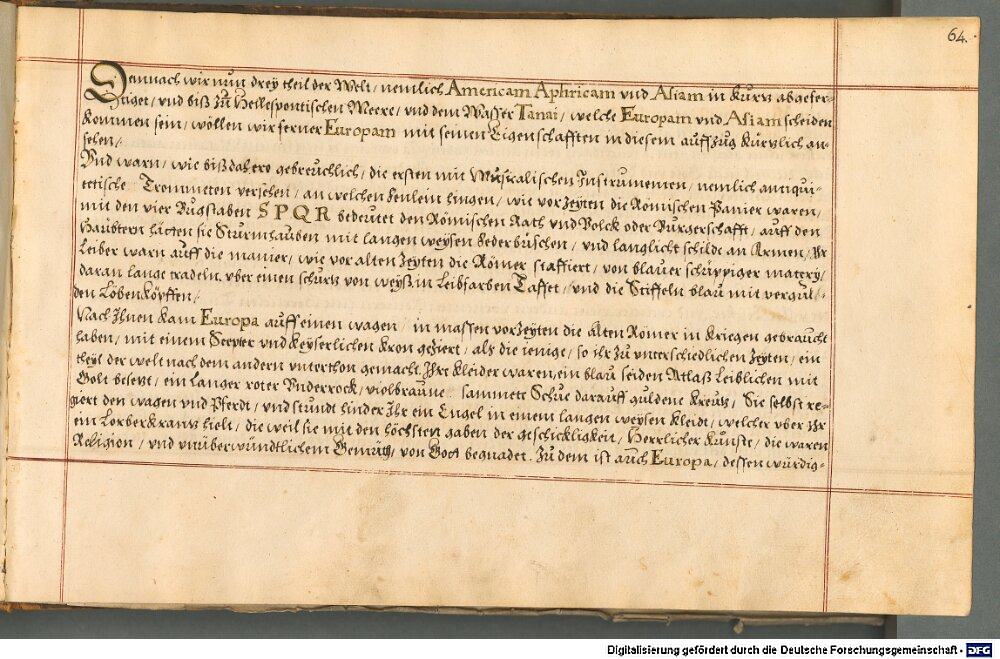 64.
Demnach wir nun drey theil der Welt / nemlich Americam Aphricam vnd Asiam in Kurtz abgefer-
tiget / vnd biß zu Hellespontischen Meere / vnd dem Wasser Tanai / welche Europam vnd Asiam scheiden
kommen sein / wöllen wir ferner Europam mit seinen Eigenschafften in diesem auffzug kürtzlich an-
sehen /
Vnd warn / wie bißdahero gebreuchlich / die ersten mit Musicalischen Instrumenten / nemlich antiqui-
tetische Trommeten versehen / an welchen fenlein hingen / wie vor zeyten die Römischen Panier waren /
mit den vier Bugstaben S P Q R bedeutet den Römischen Rath vnd Volck oder Burgerschafft / auff den
Haubtern hetten sie Sturmhauben mit langen weysen Federbüschen / vnd langlicht schildt an Armen / Ihr
Leiber warn auff die manier / wie vor alten zeyten die Römer staffiert / von blauer schüppiger matery /
daran lange tradeln vber einen schurtz von weyß in Leibfarben Taffet / vnd die Stiffeln blau mit vergul-
den Löbenköpffen /
Nach Ihnen kam Europa auff einen wagen / in massen vorzeyten die Alten Römer in Kriegen gebraucht
haben / mit einem Scepter vnd Keyserlichen Kron geziert / als die ienige / so ihr zu vnterschiedlichen zeyten / ein
theyl der welt nach dem andern vnterthon gemacht. Ihre Kleider waren, ein blau seiden Atlaß Leiblichen mit
Golt besezt / ein Langer roter Vnderrock / violbraune sammete Schue darauff guldene Kreutz / Sie selbst re-
giert den wagen vnd Pferdt / vnd stundt hinder Ihr ein Engel in einem langen weysen Kleidt / welcher vber Ihr
ein Lorberkrantz hielt / die weil sie mit den höchsten gaben der geschickligkeit / Herrlicher Künste / die waren
Religion / vnd vnüberwündtlichem Gemüth / von Gott begnadet. Zu dem ist auch Europa / dessen würdig-
Digitalisierung gefördert durch die Deutsche Forschungsgemeinschaft - DFG